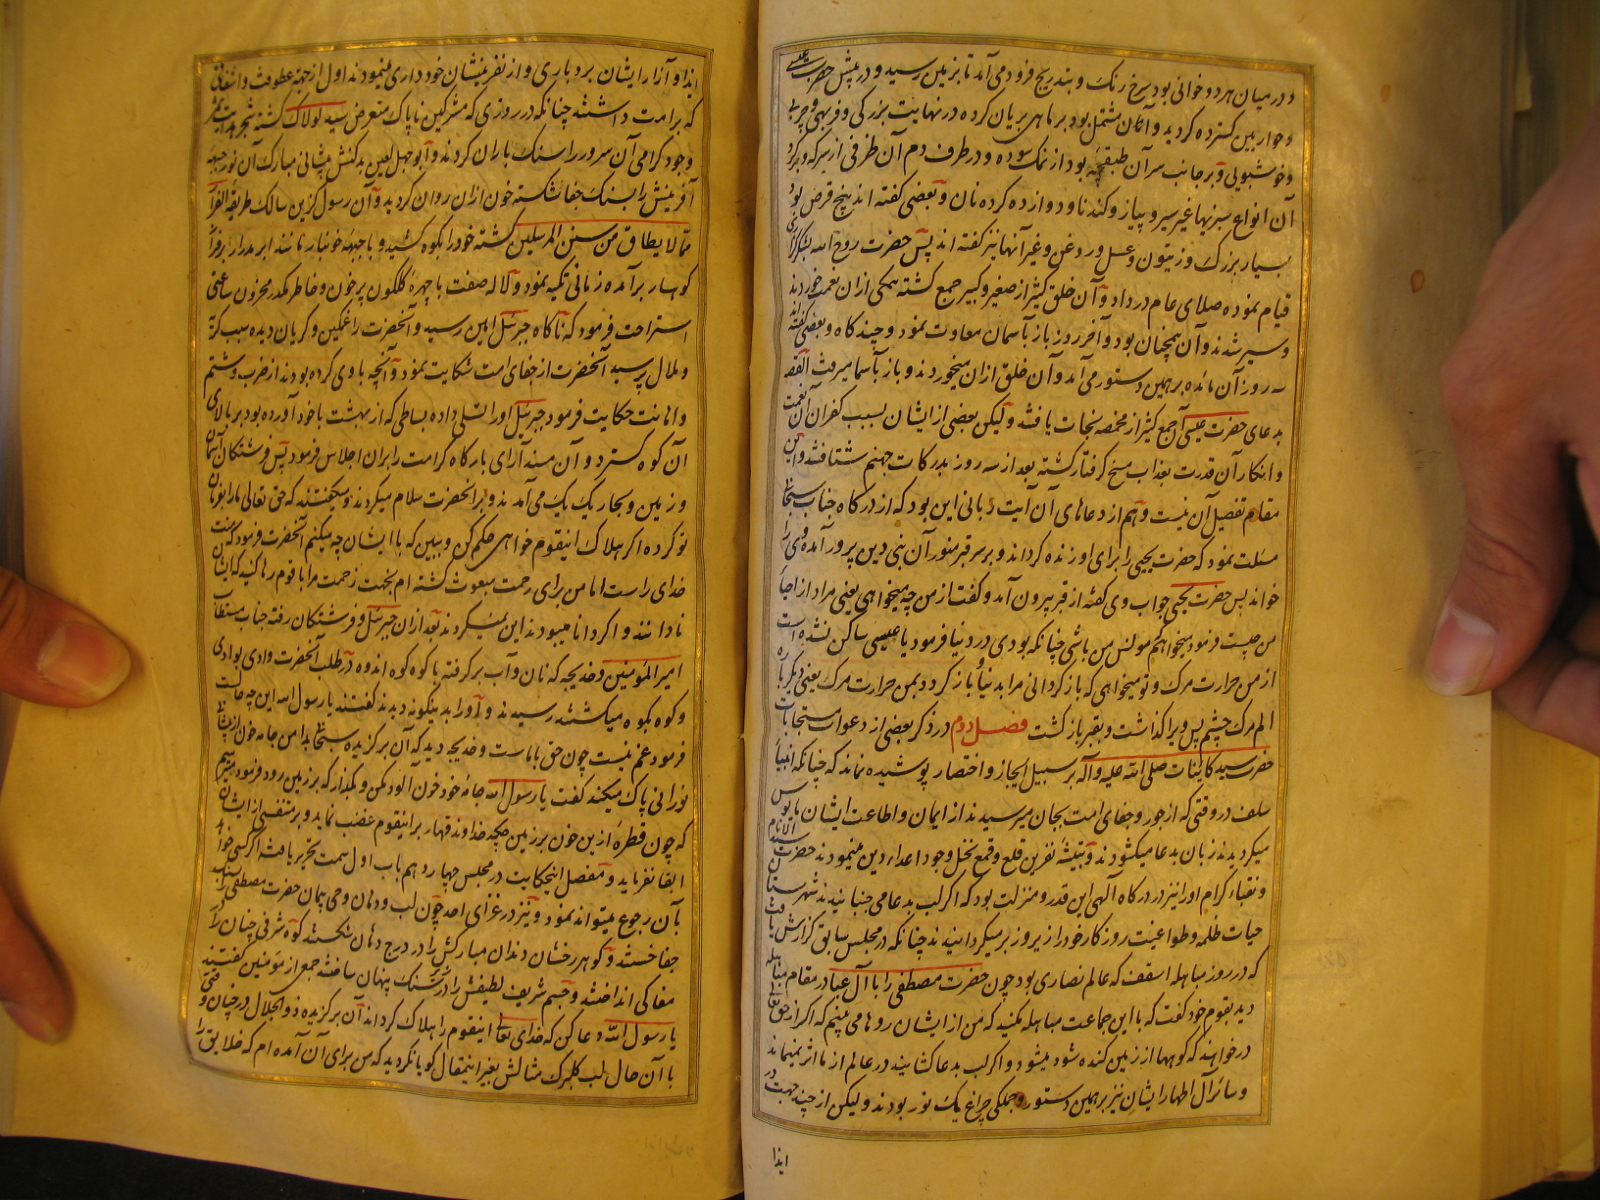 و در میان هر دو خوانی بود سرخ رنک و بتدریج فرود می‌آمد تا بزمین رسید و در پیش حضرت عیسی
و حواریین کسترده کردید و آن مشتمل بود بر ماهی بریان کرده در نهایت بزرکی و فربهی و چربی
و خوشبویی و بر جانب سر آن طبقچه بود از نمک سوده و در طرف دم آن ظرفی از سرکه و بر کرد
آن انواع سبزیها غیر سیر و پیاز و کندنا و دوازده کرده نان و بعضی کفته اند پنج قرص بود
بسیار بزرک و زیتون و عسل و روغن و غیر آنها نیز کفته اند پس حضرت روح الله بشکرگزاری
قیام نموده صلای عام در داد و آن خلق کثیر از صغیر و کبیر جمع کشته همکی از ان نعمت خوردند
و سیر شدند و آن همچنان بود و آخر روز باز بآسمان معاودت نمود و چند کاه و بعضی کفته اند
سه روز آن مائده بر همین دستور می‌آمد و آن خلق از ان میخوردند و باز بآسمان میرفت القصه
بدعای حضرت عیسی آن جمع کثیر از مخمصه نجات یافتند و لیکن بعضی از ایشان بسبب کفران آن نعمت
و انکار آن قدرت بعذاب مسخ کرفتار کشته بعد از سه روز بدرکات جهنم شتافتند و این
مقام تفصیل آن نیست و هم از دعاهای آن آیت ربانی این بود که از درکاه جناب سبحانی
مسئلت نمود که حضرت یحیی را برای او زنده کرداند و بر سر قبر منور آن نبی دین پرور آمده وی را
خواند پس حضرت یحیی جواب وی کفته از قبر بیرون آمد و کفت از من چه میخواهی یعنی مراد از احیای
من چیست فرمود میخواهم مونس من باشی چنانکه بودی در دنیا فرمود یا عیسی ساکن نشده است
از من حرارت مرک و تو میخواهی که باز کردانی مرا بدنیا و باز کردد بمن حرارت مرک یعنی دیکر باره
الم مرک چشم پس ویرا کذاشت و بقبر باز کشت فصل دوم در ذکر بعضی از دعوات مستجابات
حضرت سید کاینات صلی الله علیه و آله بر سبیل ایجاز و اختصار پوشیده نماند که چنانکه انبیای
سلف در وقتی که از جور و جفای امت بجان میرسیدند از ایمان و اطاعت ایشان مایوس
میکردیدند زبان بدعا میکشودند و بتیشه نفرین قلع و قمع نخل وجود اعداء دین مینمودند حضرت سید الانام
و نقباء کرام او را نیز در درکاه آلهی این قدر و منزلت بود که اکر لب بدعا می جنبانیدند شهرستان
حیات ظلمه و طواغیت روزکار خود را زیر و زبر میکردانیدند چنانکه در مجلس سابق کزارش یافت
که در روز مباهله اسقف که عالم نصاری بود چون حضرت مصطفی را با آل عبا در مقام مباهله
دید بقوم خود کفت که با این جماعت مباهله مکنید که من از ایشان روها می بینم که اکر از حق تعالی
درخواهند که کوهها از زمین کنده شود میشود و اکر لب بدعا کشایند در عالم از ما اثر نمیماند
و سائر آل اطهار ایشان نیز بر همین دستور و جملکی چراغ یک نور بودند و لیکن از چند جهت در
ایذا
ایذا و آزار ایشان بردباری و از نفرینشان خودداری مینمودند اول از جهة عطوفت و اشفاقی
که بر امت داشتند چنانکه در روزی که مشرکین ناپاک متعرض سید لولاک کشته
وجود کرامی آن سرور را سنک باران کردند و ابو جهل لعین بدکنش پیشانی مبارک آن نور جبهه
آفرینش را بسنک جفا شکسته خون ازان روان کردید و آن رسول کزین سالک طریقه الفرار
مما لا یطاق من سنن المرسلین کشته خود را بکوه کشید و با جبهه خونبار مانند ابر مدرار بر فراز
کوهسار برآمده زمانی تکیه نمود و لاله صفت با چهرهٔ کلکون پرخون و خاطر مکدر محزون ساعتی
استراحت فرمود که ناکاه جبرئیل امین رسید و آنحضرت را غمکین و کریان دیده سبب کریه
و ملال پرسید آنحضرت از جفای امت شکایت نمود و آنچه با وی کرده بودند از ضرب و شتم
و اهانت حکایت فرمود جبرئیل او را تسلی داده بساطی که از بهشت با خود آورده بود بر بالای
آن کوه کسترد و آن مسند آرای بارکاه کرامت را بران اجلاس فرمود پس فرشتکان آسمان
و زمین و بحار یک یک می‌آمدند و بر آنحضرت سلام میکردند و میکفتند که حق تعالی ما را بفرمان
تو کرده اکر هلاک اینقوم خواهی حکم کن و ببین که با ایشان چه میکنیم آنحضرت فرمود که منت
خدای راست اما من برای رحمت مبعوث کشته ام نجهت زحمت مرا با قوم رها کنید که ایشان
نادانند و اکر دانا میبودند این نمیکردند بعد از ان جبرئیل و فرشتکان رفته جناب مستطاب
امیر المؤمنین و خدیجه که نان و آب برکرفته با کوه کوه اندوه در طلب آنحضرت وادی بوادی
و کوه بکوه میکشتند رسیدند و او را بدینکونه دیدند کفتند یا رسول الله این چه حالت
فرمود غم نیست چون حق با ماست و خدیجه دید که آن برکزیده سبحانی بدامن جامه خون از پیشانی
نورانی پاک میکند کفت یا رسول الله جامهٔ خود خون آلود مکن و بکذار که بر زمین رود فرمود میترسم
که چون قطرهٔ ازین خون بر زمین چکد خداوند قهار بر اینقوم غضب نماید و بر متنفسی از ایشان
ابقا نفرماید و مفصل اینحکایت در مجلس چهاردهم باب اول سمت تحریر یافته اکر کسی خواهد
بآن رجوع میتواند نمود و نیز در غزای احد چون لب و دهان وحی بیان حضرت مصطفی را بسنک
جفا خستند و کوهر رخشان دندان مبارکش را در درج دهان شکستند کوه شرفی چنان را در
مغاکی انداختند و جسم شریف لطیفش را در سنک پنهان ساختند جمعی از مؤمنین کفتند
یا رسول الله دعا کن که خدای تعالی اینقوم را هلاک کرداند آن برکزیده ذو الجلال در چنان وقتی و
با آن حال لب کلبرک مثالش بغیر اینمقال کویا نکردید که من برای آن آمده ام که خلایق را